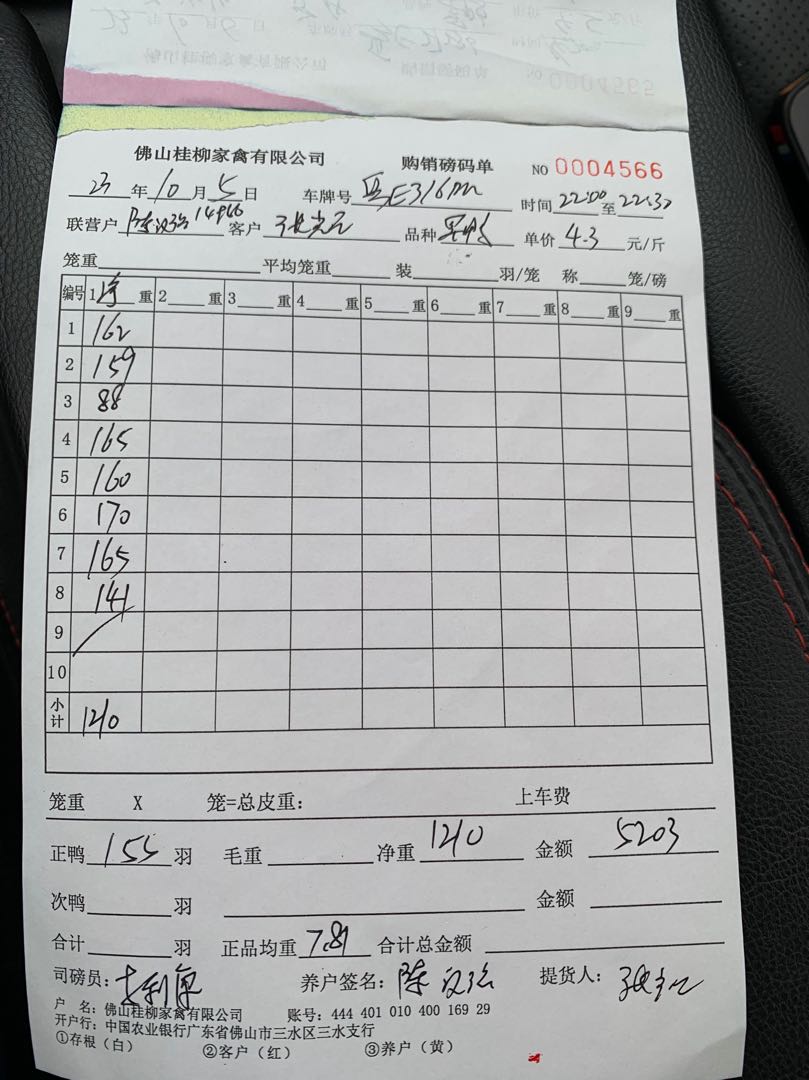 NO 0004565
佛山桂柳家禽有限公司 购销磅码单 NO 0004566
23年10月5日 车牌号 E316 时间22:00至22:30
联营户 陈汉强 客户 品种 单价4.3元/斤
笼重 平均笼重 装 羽/笼 称 笼/磅
编号 1净重 2 重 3 重 4 重 5 重 6 重 7 重 8 重 9 重
1 162
2 159
3 88
4 165
5 160
6 170
7 165
8 141
9
10
小计 1210
笼重 X 笼=总皮重： 上车费
正鸭155羽 毛重 净重1210 金额5203
次鸭 羽 金额
合计 羽 正品均重7.81 合计总金额
司磅员： 养户签名：陈汉强 提货人：
户 名：佛山桂柳家禽有限公司 账号：444 401 010 400 169 29
开户行：中国农业银行广东省佛山市三水区三水支行
①存根（白） ②客户（红） ③养户（黄）